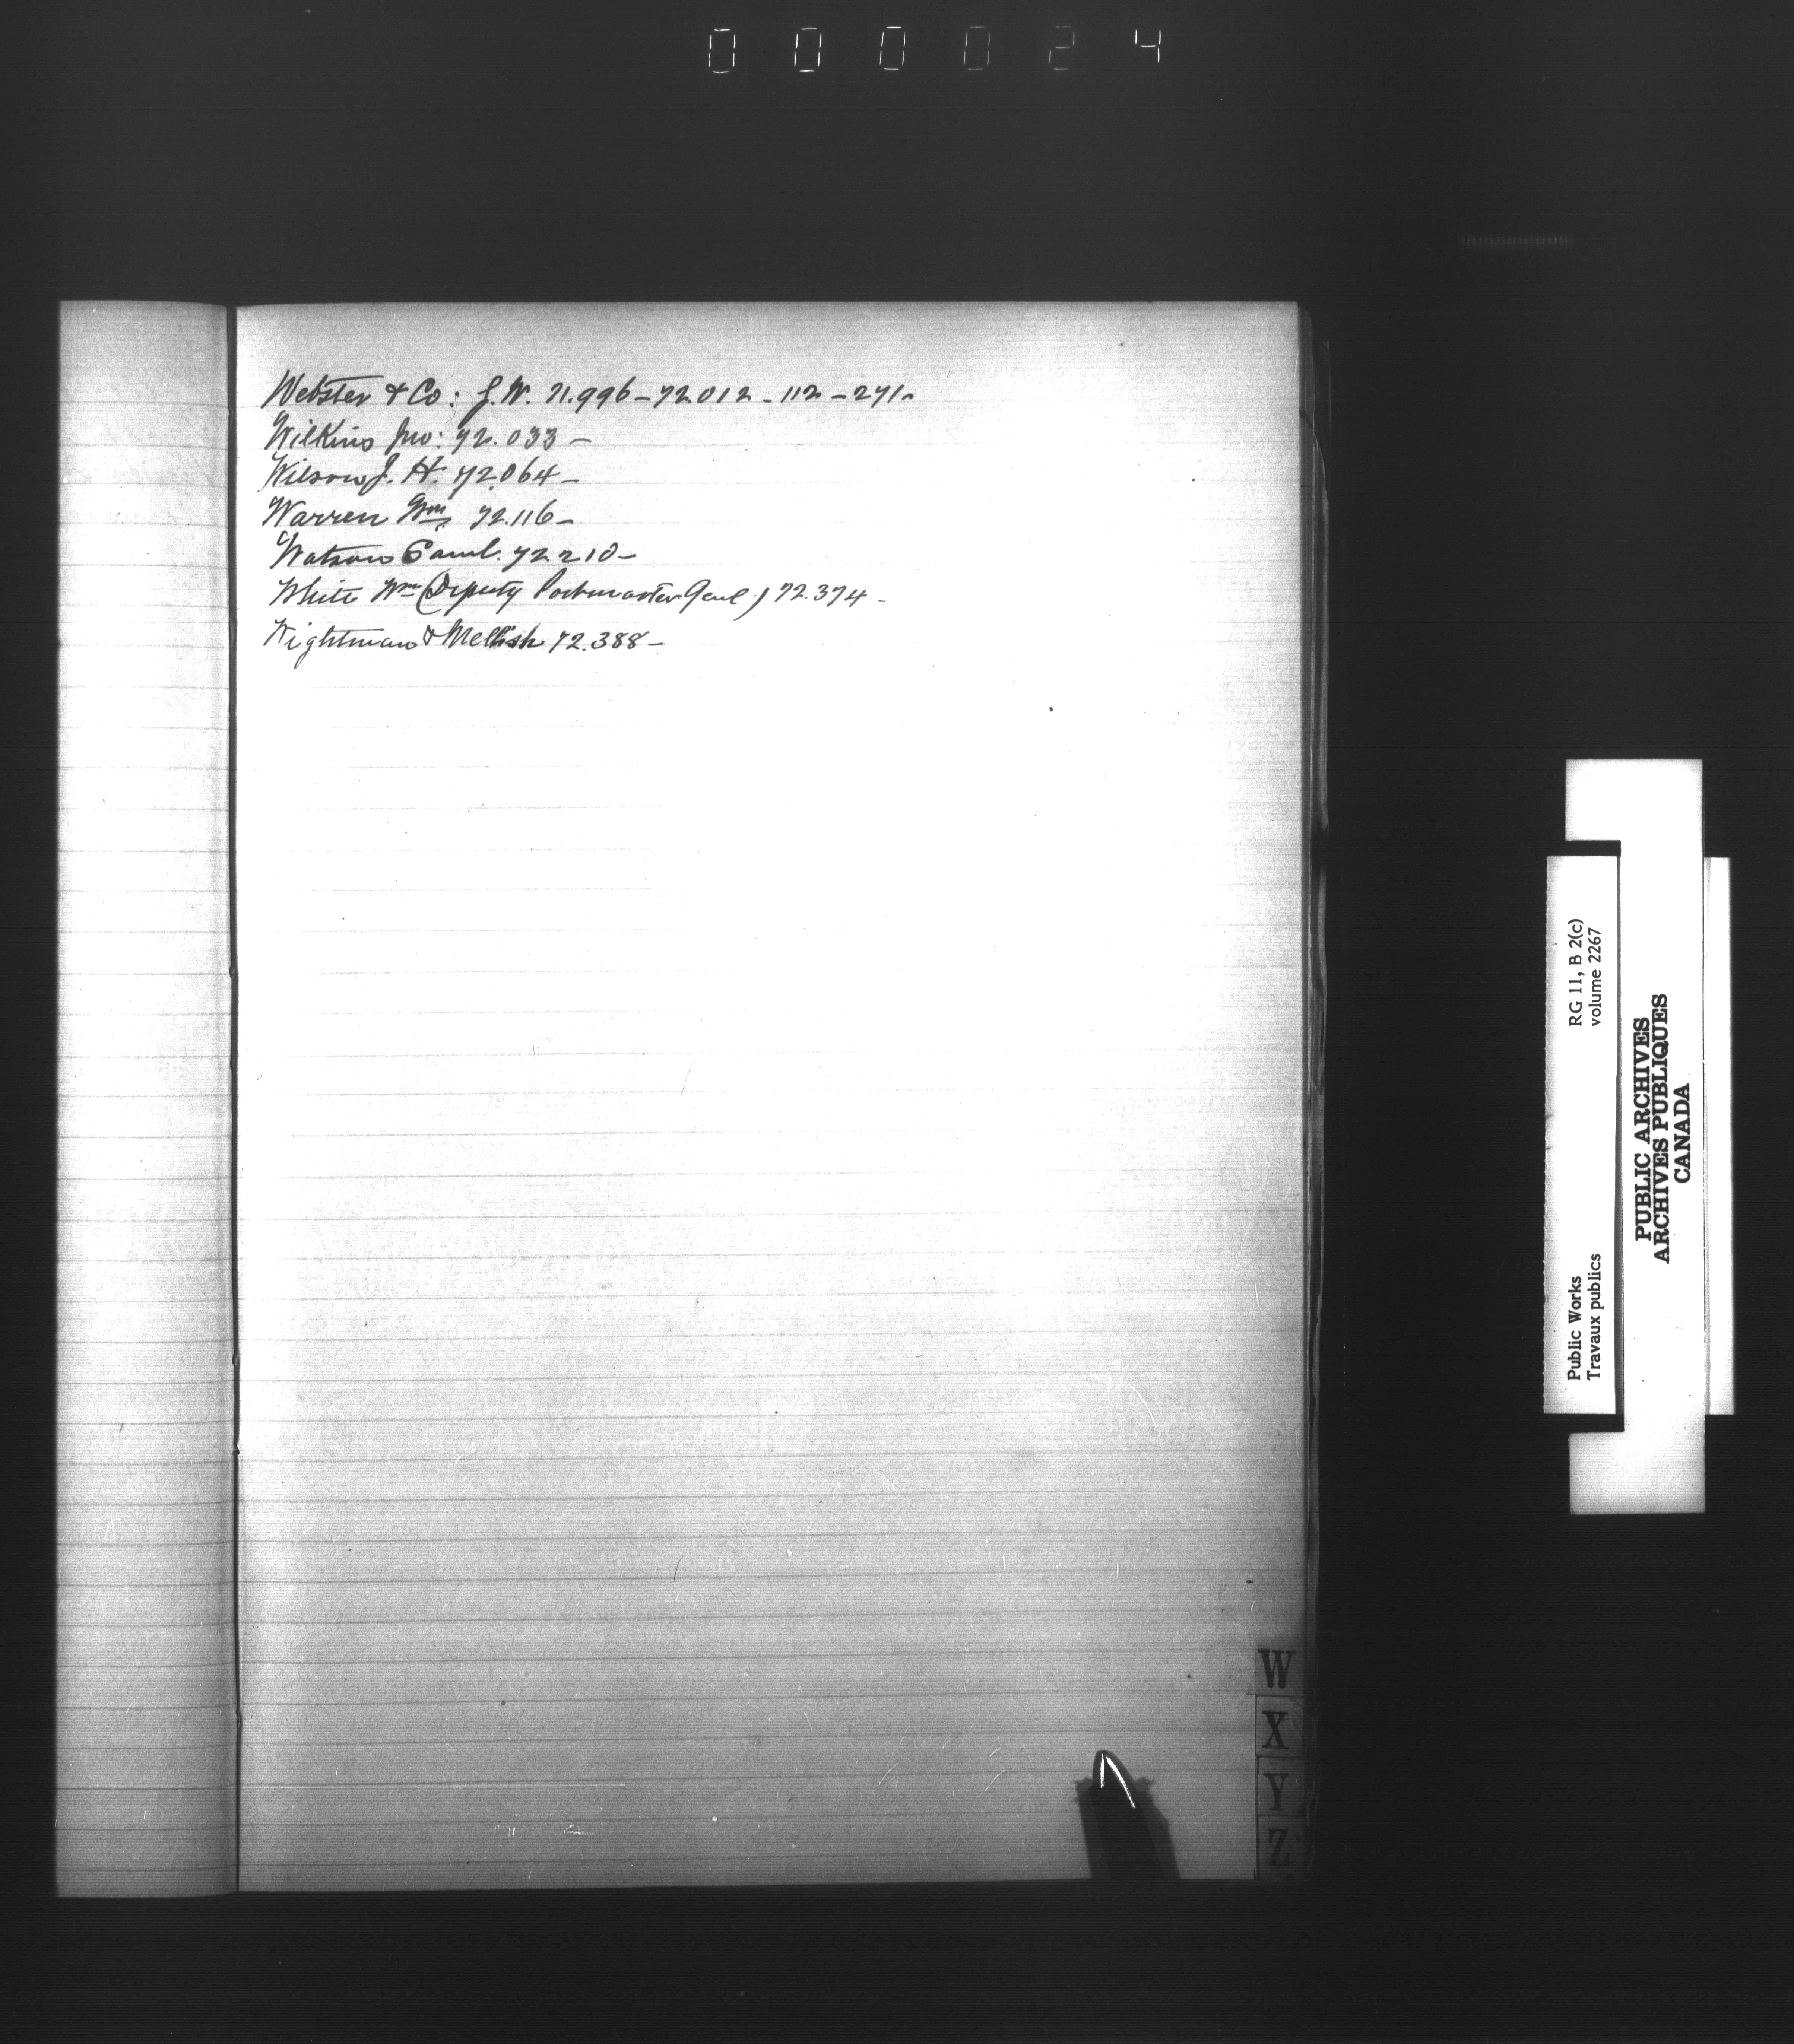 000024
Webster & Co: J. W. 71.996 – 72.012 – 112 – 271 –
Wilkins Jno: 72.033 –
Wilson J. H. 72.064 –
Warren Wm 72.116 –
Watson Saml. 72 210 –
White Wm (Deputy Postmaster Genl) 72.374 –
Wightman & Mellish 72.388 –
W
X
Y
Z
Public Works
Travaux publics
RG 11, B 2(c)
volume 2267
PUBLIC ARCHIVES
ARCHIVES PUBLIQUES
CANADA